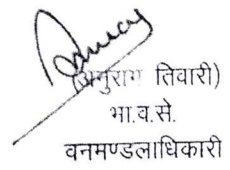 (अनुराग तिवारी)
भा.व.से.
वनमण्डलाधिकारी